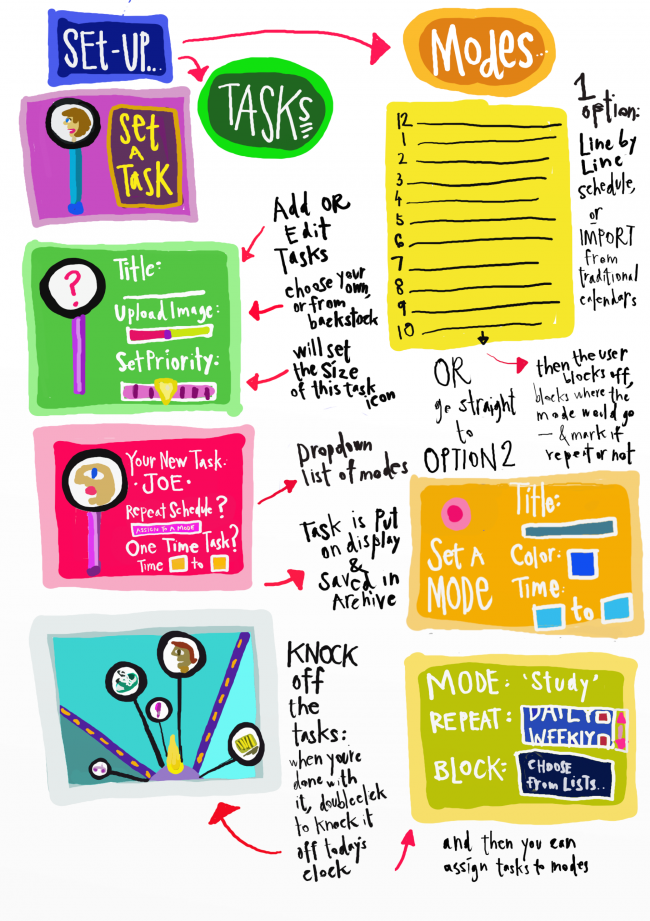 SET-UP...
TASKs
Modes...
Set
A
TASK
Add OR
Edit
Tasks
Title:
choose your
own,
or from
backstock
Upload Image:
Set Priority:
will set
the Size
of this task
icon
?
Your New Task:
·JOE·
Repeat Schedule?
ASSIGN TO A MODE
One Time Task?
Time to
Dropdown
list of modes
Task is Put
on display
&
Saved in
Archive
!
KNOCK
off
the
tasks:
when you're
done with
it, doubleclck
to knock it
off today's
clock
12
1
2
3
4
5
6
7
8
9
10
1
option:
Line by
Line
schedule,
or
IMPORT
from
traditional
calendars
OR
go straight
to
OPTION 2
then the user
blocks off,
blocks where the
mode would go
— & mark if
repeit or not
Set A
MODE
Title:
Color:
Time:
to
MODE: 'Study'
REPEAT: DAILY
WEEKLY
BLOCK: CHOOSE
from LISTS..
and then you can
assign tasks to modes